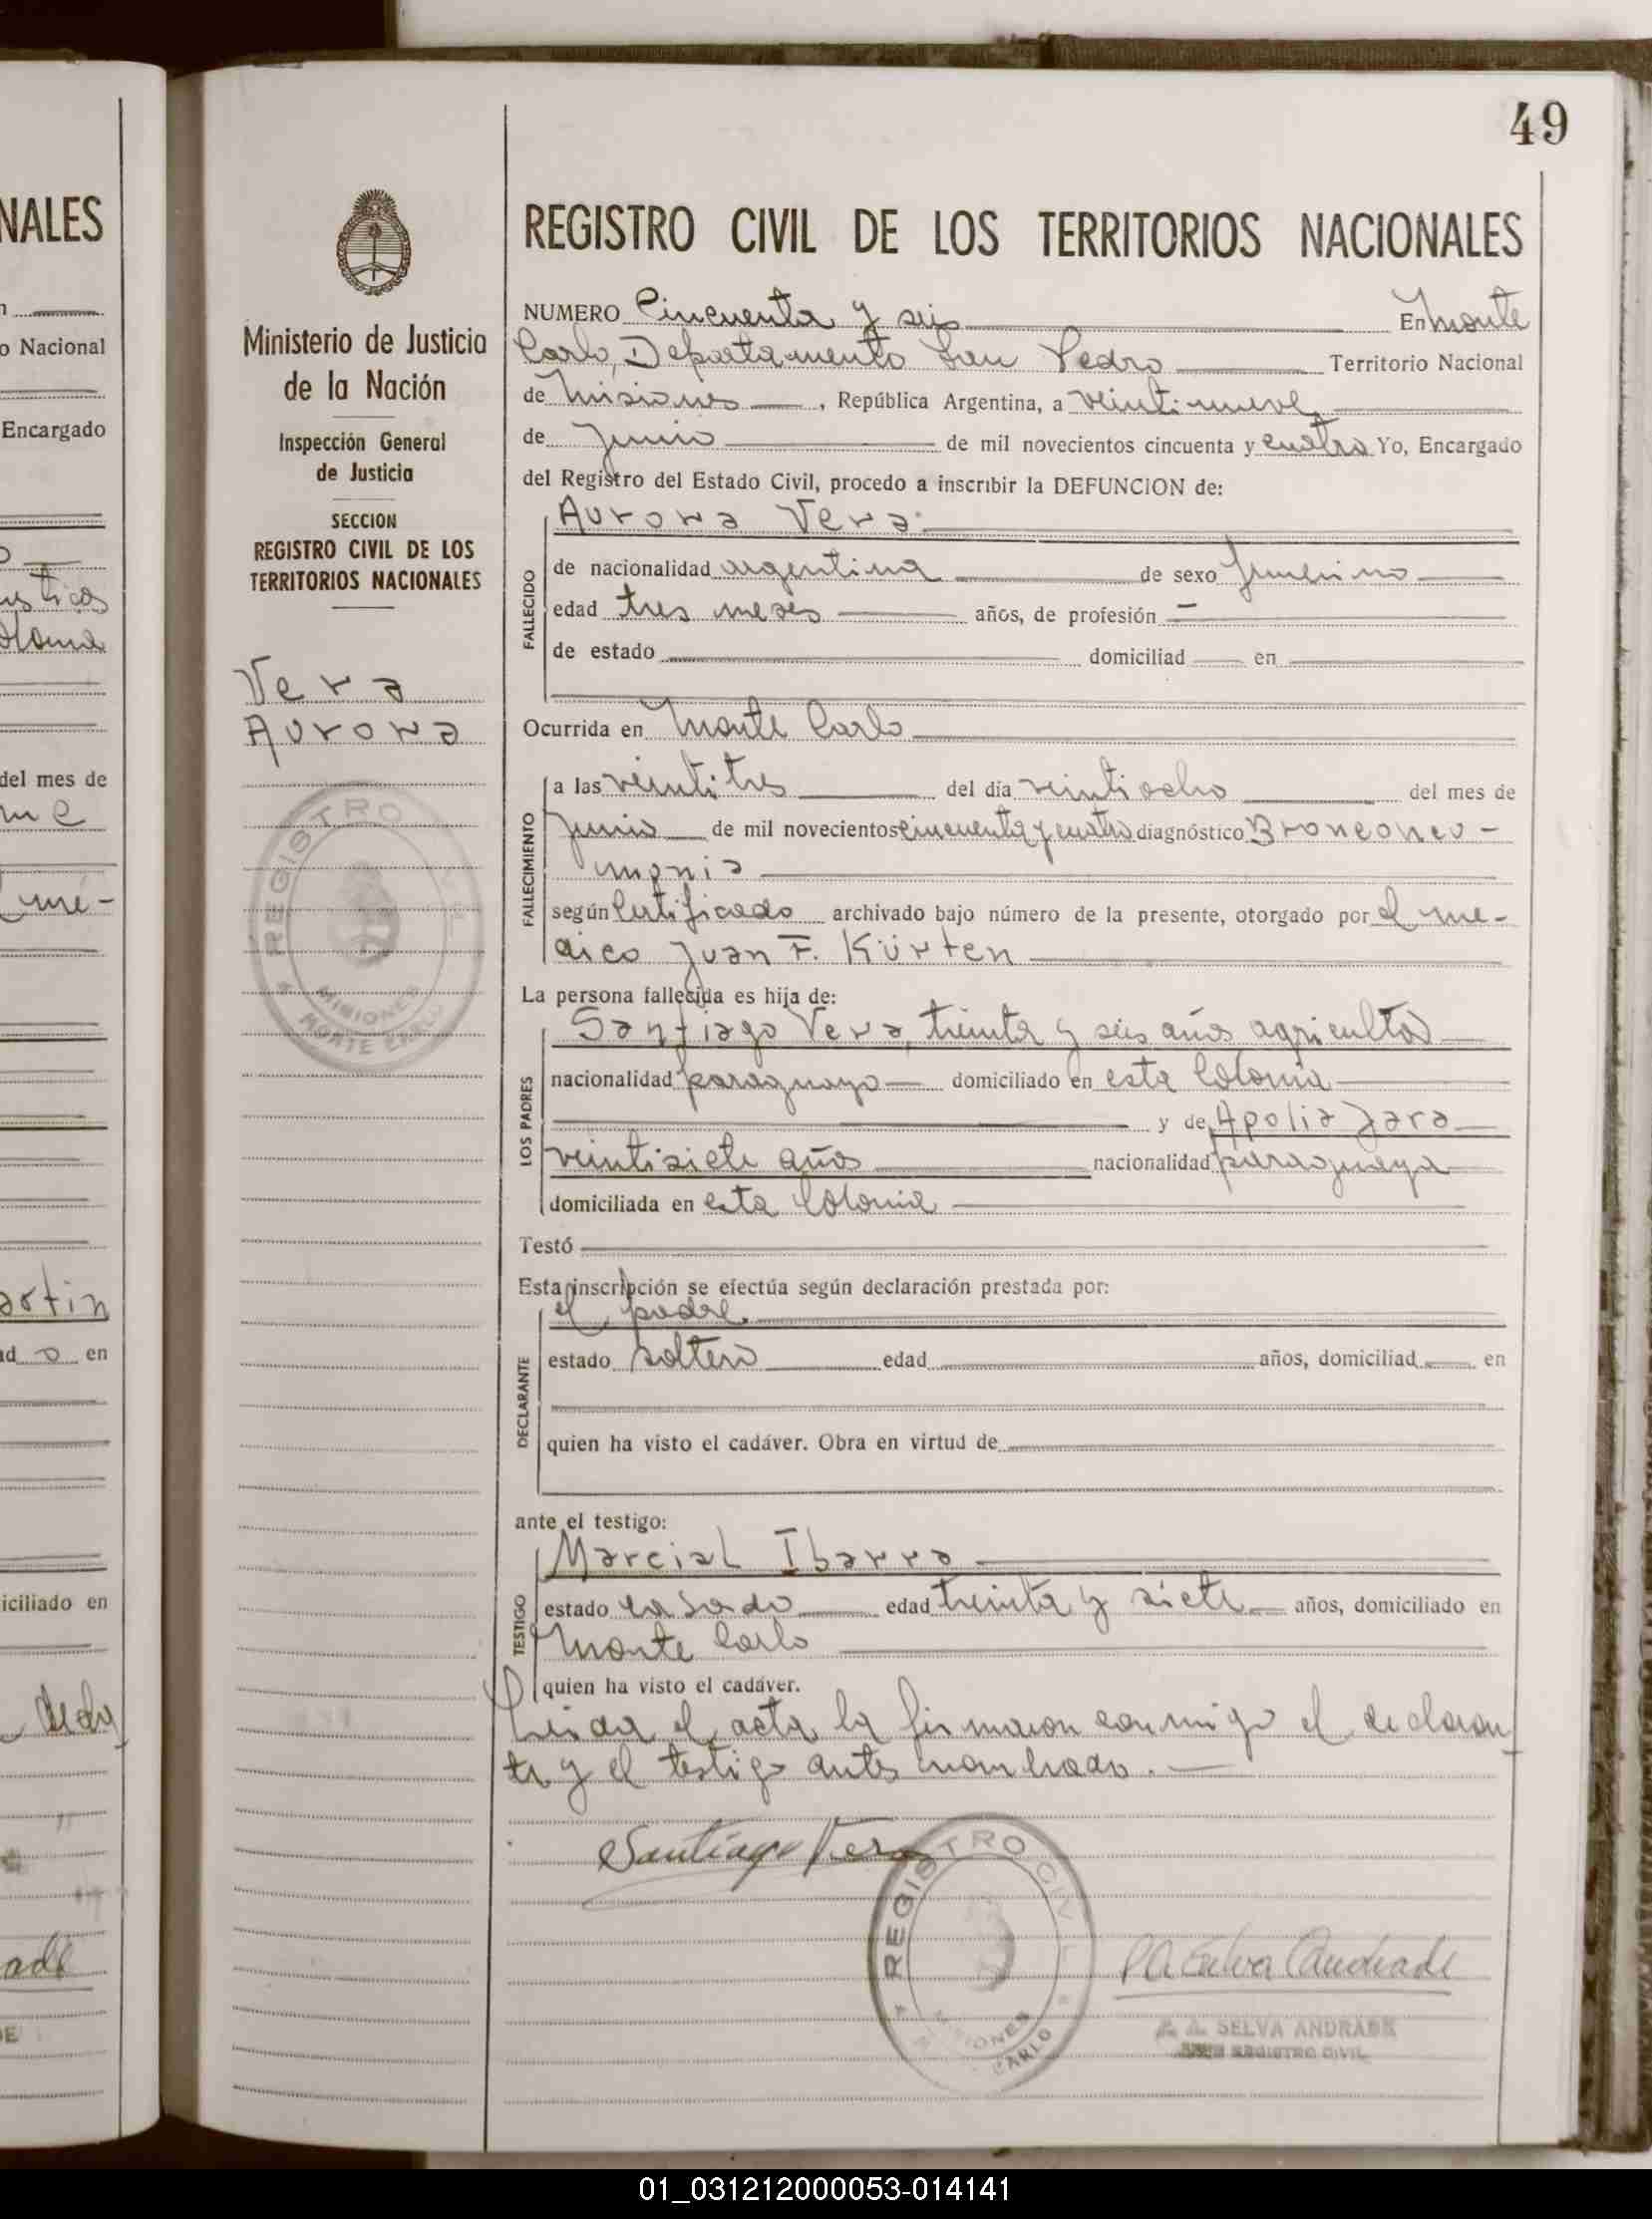 49
NALES
o Nacional
Encargado
del mes de
me
mé-
artin
ad o en
iciliado en
Ministerio de Justicia
de la Nación
Inspección General
de Justicia
SECCION
REGISTRO CIVIL DE LOS
TERRITORIOS NACIONALES
Vera
Aurora
REGISTRO CIVIL
MISIONES
MONTE CARLO
REGISTRO CIVIL DE LOS TERRITORIOS NACIONALES
NUMERO Cincuenta y seis En Monte
Carlo, Departamento San Pedro Territorio Nacional
de Misiones, República Argentina, a veintinueve
de Junio de mil novecientos cincuenta y cuatro Yo, Encargado
del Registro del Estado Civil, procedo a inscribir la DEFUNCION de:
Aurora Vera
FALLECIDO
de nacionalidad argentina de sexo femenino
edad tres meses años, de profesión —
de estado domiciliad en
Ocurrida en Monte Carlo
FALLECIMIENTO
a las veintitres del día veintiocho del mes de
Junio de mil novecientos cincuenta y cuatro diagnóstico Bronconeu-
monia
según Certificado archivado bajo número de la presente, otorgado por el me-
dico Juan F. Kürten
La persona fallecida es hija de:
LOS PADRES
Santiago Vera, treinta y seis años agricultor
nacionalidad paraguayo domiciliado en esta Colonia
y de Apolia Jara
veintisiete años nacionalidad paraguaya
domiciliada en esta Colonia
Testó
Esta inscripción se efectúa según declaración prestada por:
DECLARANTE
el padre
estado soltero edad años, domiciliad en
quien ha visto el cadáver. Obra en virtud de
ante el testigo:
TESTIGO
Marcial Ibarra
estado casado edad treinta y siete años, domiciliado en
Monte Carlo
quien ha visto el cadáver.
Leida el acta la firmaron conmigo el declaran-
te y el testigo antes nombrado.
Santiago Vera
REGISTRO CIVIL
MISIONES
CARLO
Selva Andrade
A. SELVA ANDRADE
JEFE REGISTRO CIVIL
01_031212000053-014141